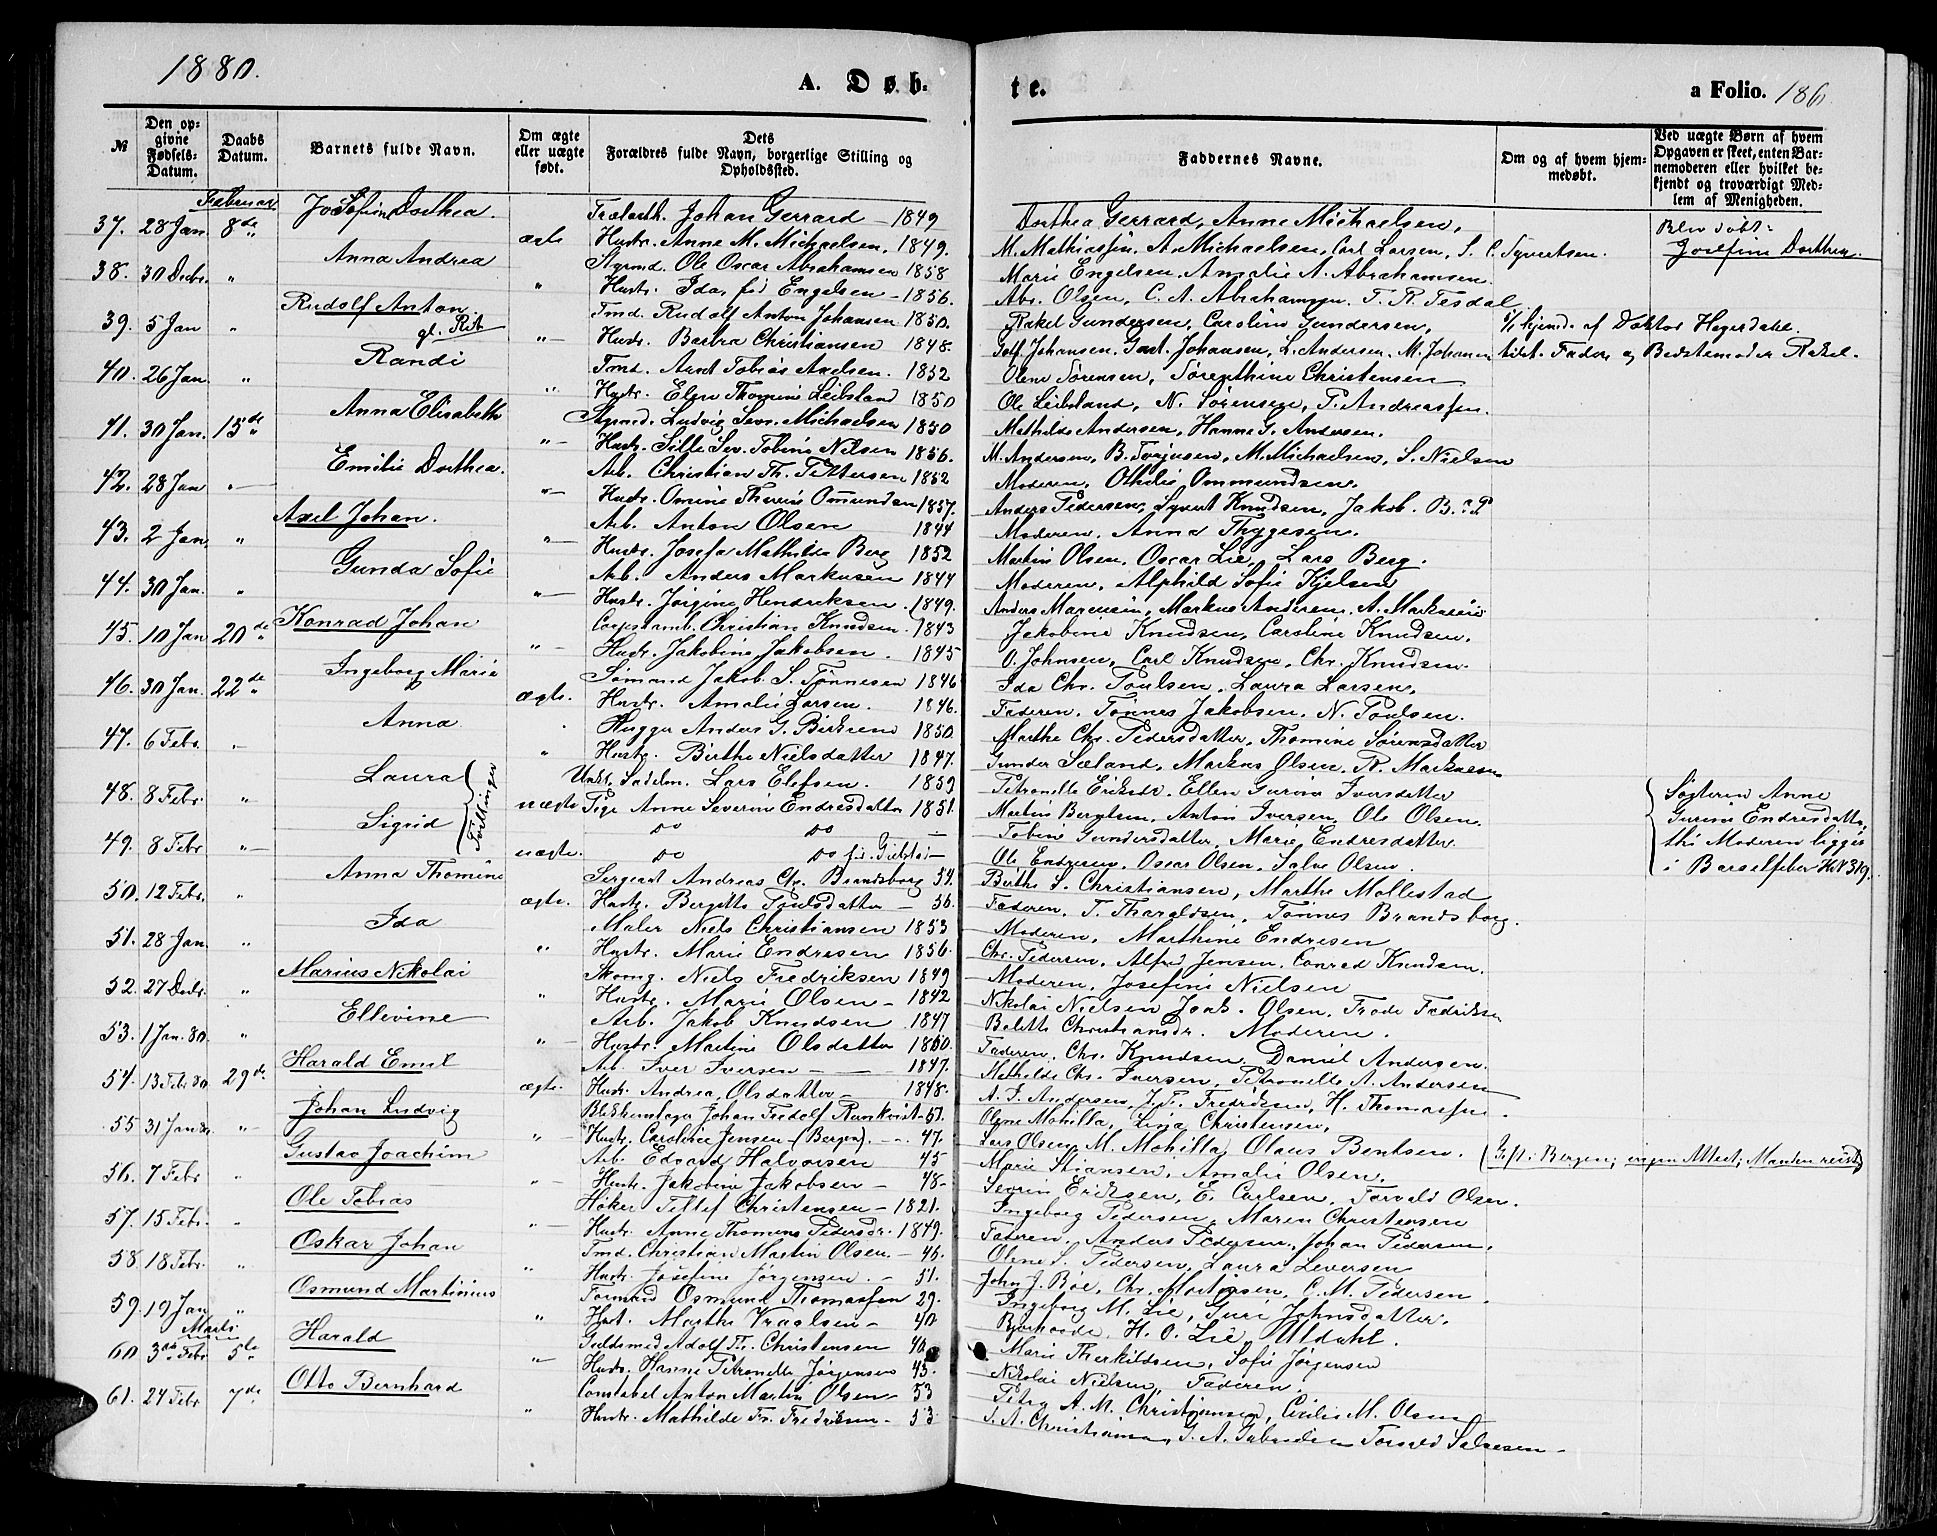 1880.
A. Døb-
te.
a Folio. 186
№
Den op-
givne
Fødsels-
Datum.
Daabs
Datum.
Barnets fulde Navn.
Om ægte
eller uægte
født.
Dets
Forældres fulde Navn, borgerlige Stilling og
Opholdssted.
Faddernes Navne.
Om og af hvem hjem-
medøbt.
Ved uægte Børn af hvem
Opgaven er skeet, enten Bar-
nemoderen eller hvilket be-
kjendt og troværdigt Med-
lem af Menigheden.
Februar
37. 28 Jan. 8de Josefine Dorthea. ægte Johan Gerrard – 1849
Hustr. Anne M. Michaelsen. 1849.
Dorthea Gerrard, Anne Michaelsen,
M. Mathiassen, A. Michaelsen, Carl Larsen, S. C. Syvertsen.
Blev døbt:
Josefine Dorthea.
38. 30 Decbr. " Anna Andrea " Styrmd. Ole Oscar Abrahamsen 1858
Hustr. Ida, fød Engelsen – 1856.
Marie Engelsen, Amalie A. Abrahamsen.
Abr. Olsen, C. A. Abrahamsen, T. R. Tesdal
39. 5 Jan " Rudolf Anton " – Tmd. Rudolf Anton Johansen 1850.
Hustr. Barbra Christiansen 1848.
Rakel Gundersen, Caroline Gundersen,
Johansen, Gust. Johansen, L. Andersen, M. Johansen
hjemd. af Doktor Hagerdahl.
Fadder og Bedstemoder Rakel.
40. 26 Jan. " Randi " Tmd. Arnt Tobias Axelsen. 1852
Hustr. Elen Thomine Leibsland 1850
Olene Sørensen, Sørenthine Christensen
Ole Leibsland, N. Sørensen, T. Andreassen.
41. 30 Jan. 15de Anna Elisabeth " – Styrmd. Ludvig Sevr. Michaelsen 1850
Hustr. Sille Sev. Tobine Nilsen 1856.
Mathilde Andersen, Hanne G. Andersen.
M. Andersen, B. Torjusen, M. Michaelsen, S. Nielsen
42. 28 Jan " – Emilie Dorthea. " – Arb. Christian Th. Pettersen 1852
Hustr. Omine Therese Omundsen 1857.
Moderen, Othilie Ommundsen,
Anders Pedersen, Syvert Knudsen, Jakob B.
43. 2 Jan. " Axel Johan. " – Arb. Anton Olsen 1844
Hustr. Josefa Mathilde Berg 1852
Moderen, Anna Thygesen.
Martin Olsen, Oscar Lie, Lars Berg.
44. 30 Jan. " Gunda Sofie " – Arb. Anders Markusen 1844
Hustr. Jørgine Hendriksen. 1849.
Moderen, Alphild Sofie Kjelsen
Anders Marcusen, Markus Andersen, A. Markusen
45. 10 Jan 20de Konrad Johan " – Christian Knudsen. 1843
Hustr. Jakobine Jakobsen. 1845
Jakobine Knudsen, Caroline Knudsen,
O. Johnsen, Carl Knudsen, Chr. Knudsen.
46. 30 Jan. 22de Ingeborg Marie ægte. Sømand Jakob S. Tønnesen 1846
Hustr. Amalie Larsen. 1846.
Ida Chr. Poulsen, Laura Larsen,
Faderen, Tønnes Jakobsen, N. Poulsen.
47. 6 Febr. – Anna " Hugger Anders G. Birkrem 1850.
Hustr. Birthe Nielsdatter 1847.
Marthe Chr. Pedersdatter, Thomine Sørensdatter
Gunder Sæland, Markus Olsen, R. Markusen
48. 8 Febr. " – Laura uægte Unkt. Sadelm. Lars Elefsen. 1859
Pige Anne Severine Endresdatter 1851.
Petronelle Eriksdr. Ellen Gurine Iversdatter
Martin Bergtsen, Anton Iversen, Ole Olsen.
Søsteren Anne
Gurine Endresdatter,
thi Moderen ligger
i Barselfeber
Tvillinger
49. 8 Febr " – Sigrid uægte. Do Do –
Do Do
Tobine Gundersdatter, Marie Endresdatter.
Ole Endresen, Oscar Olsen, Salve Olsen.
50. 12 Febr. " Anna Thomine ægte. Sergeant Andreas Chr. Brandsborg 54.
Hustr. Bergitte Poulsdatter – 56.
Birthe S. Christiansen, Marthe Mollestad
Faderen, T. Tharaldsen, Tønnes Brandsborg.
51. 28 Jan. " Ida " Maler Niels Christiansen 1853
Hustr. Marie Endresen 1856.
Moderen, Marthine Endresen
Chr. Pedersen, Alfred Jensen, Conrad Knudsen.
52. 27 Decbr. " Marius Nikolai " Skomg. Niels Fredriksen 1849
Hustr. Marie Olsen – 1842
Moderen, Josefine Nielsen
Nikolai Nielsen, Olsen, Frode Fredriksen
53. 1 Jan. 80. " Ellevine " – Arb. Jakob Knudsen 1847
Hustr. Martine Olsdatter 1860.
Belette Christiansdr. Moderen.
Faderen, Chr. Knudsen, Daniel Andersen.
54. 13 Febr 80. 29de Harald Emil ægte. Arb. Iver Iversen – 1847.
Hustr. Andrea Olsdatter – 1848.
Mathilde Chr. Iversen, Petronelle A. Andersen
A. T. Andersen, J. F. Fredriksen, H. Thomassen.
55 31 Jan 80. " – Johan Ludvig " – Blikkenslager Johan Fredolf Rankvist – 51.
Hustr. Caroline Jensen (Bergen). – 47.
Olene Mohilla, Lina Christensen,
Lars Olsen, M. Mohilla, Olaus Bentsen.
(Gift i Bergen; ingen Attest; Manden reist)
56. 7 Febr " Gustav Joachim " – Arb. Edvard Halvorsen 45
Hustr. Jakobine Jakobsen – 48 –
Marie Stiansen, Amalie Olsen.
Severin Eriksen, E. Carlsen, Torvald Olsen.
57. 15 Febr. " Ole Tobias " – Høker Tellef Christensen – 1821.
Hustr. Anne Thomine Pedersdr. 1849.
Ingeborg Pedersen, Maren Christensen
Faderen, Anders Pedersen, Johan Pedersen,
58. 18 Febr. " Oskar Johan " Tmd. Christian Martin Olsen. – 46.
Hustr. Josefine Jørgensen. – 51.
Olene S. Pedersen, Laura Leversen
John J. Bøe, Chr. Mortensen, C. M. Pedersen
59. 19 Jan " Osmund Martinius " Osmund Thomassen 29.
Hust. Marthe Vraalsen – 40
Ingeborg M. Lie, Guri Johnsdatter,
H. O. Lie, Uldahl.
Marts
60 3die Febr 5te Harald " – Guldsmed Adolf Th. Christensen 46
Hustr. Hanne Petronelle Jørgensen 45.
Marie Therkildsen, Sofie Jørgensen
Nikolai Nielsen, Faderen.
61. 24 Febr 7de Otto Bernhard " Constabel Anton Martin Olsen – 53
Hustr. Mathilde Fr. Fredriksen – 53.
Petra A. M. Christiansen, Cecilie M. Olsen
S. A. Christiansen, G. A. Gabrielsen Torvald Salvesen –